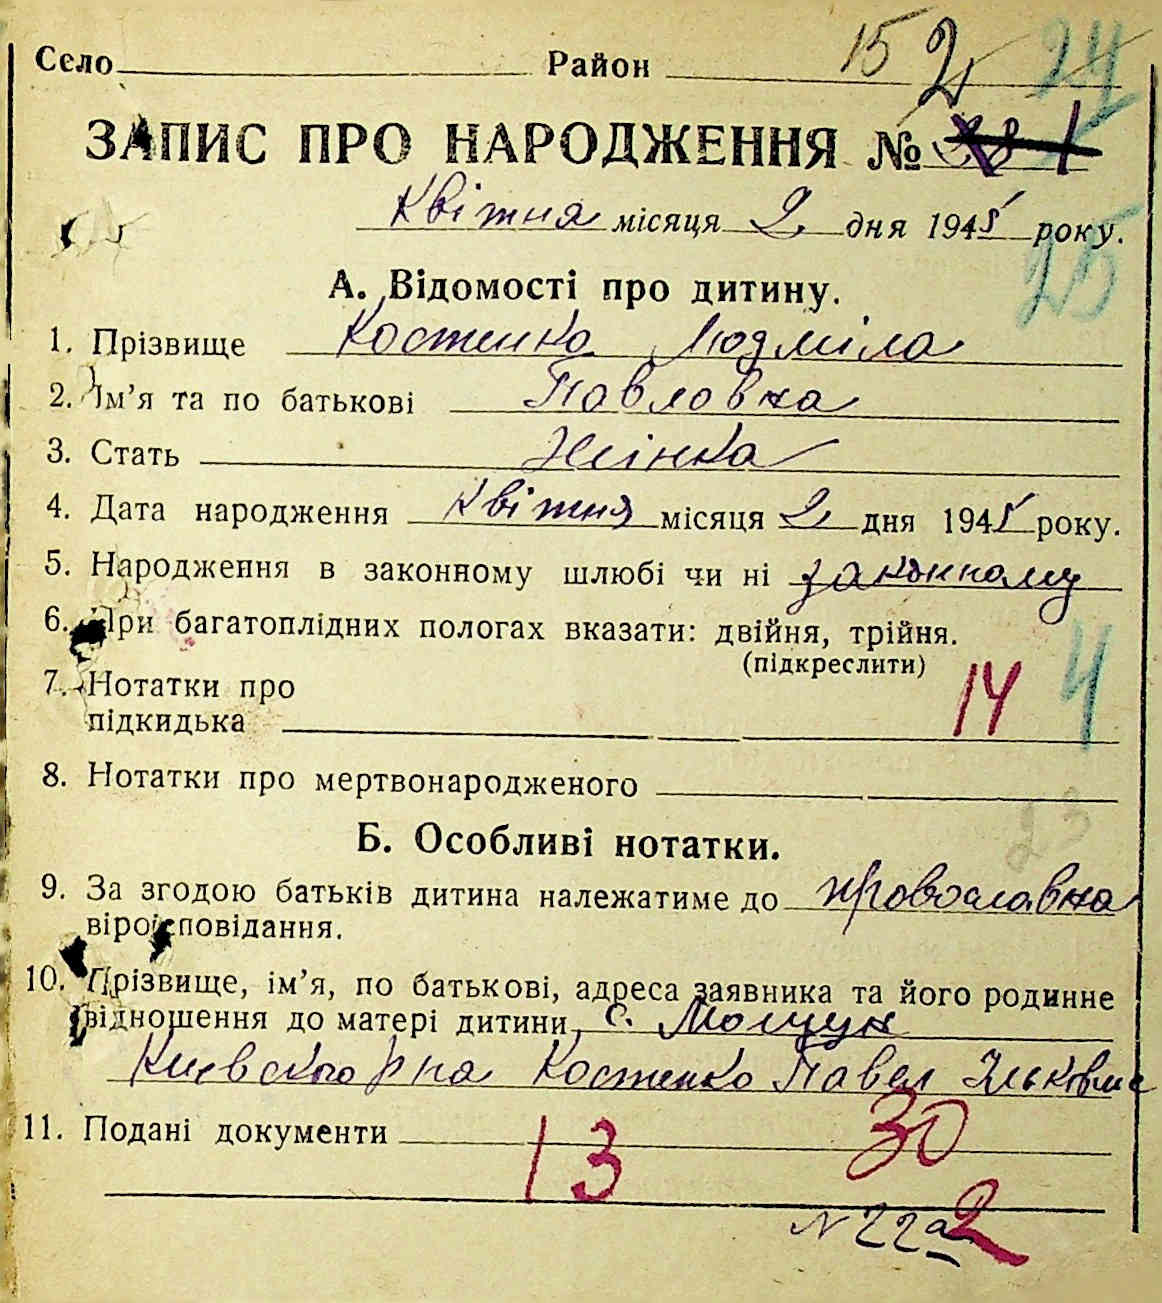 Село Район 15 2 24
ЗАПИС ПРО НАРОДЖЕННЯ №
Квітня місяця 2 дня 1945 року.
25
А. Відомості про дитину.
1. Прізвище Костенко Людміла
2. Ім’я та по батькові Павловна
3. Стать Жінка
4. Дата народження Квітня місяця 2 дня 1945 року.
5. Народження в законному шлюбі чи ні законному
6. При багатоплідних пологах вказати: двійня, трійня.
(підкреслити)
7. Нотатки про 14 4
підкидька
8. Нотатки про мертвонародженого
23
Б. Особливі нотатки.
9. За згодою батьків дитина належатиме до провославна
віросповідання.
10. Прізвище, ім’я, по батькові, адреса заявника та його родинне
відношення до матері дитини с. Мощун
Киевского рна Костенко Павел
11. Подані документи
13 30
N 22а 2